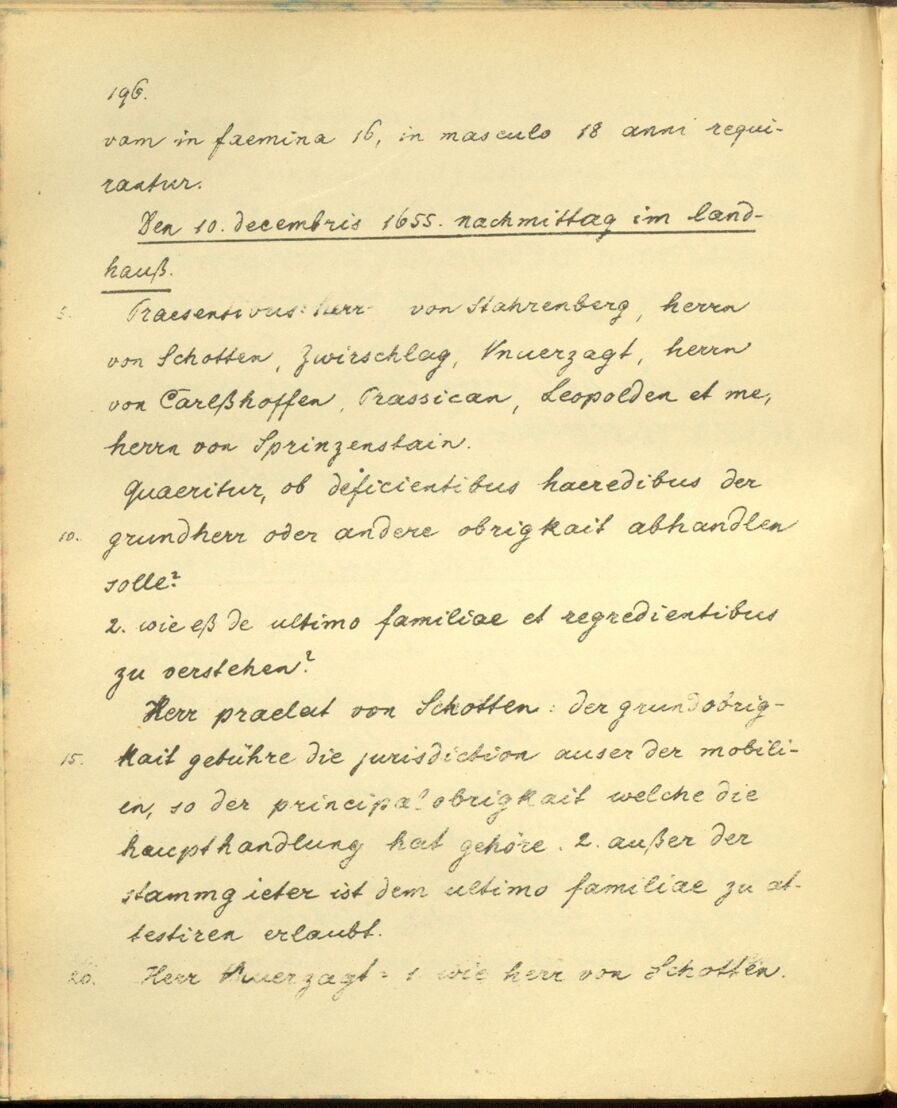 196.
vam in faemina 16, in masculo 18 anni requi-
rantur.
Den 10. decembris 1655. nachmittag im land-
hauß.
5. Praesentibus: herr von Stahrenberg, herrn
von Schotten, Zwirschlag, Vnuerzagt, herrn
von Carlßhoffen, Prassican, Leopolden et me,
herrn von Sprinzenstain.
Quaeritur, ob deficientibus haeredibus der
10. grundherr oder andere obrigkait abhandlen
solle?
2. wie eß de ultimo familiae et regredientibus
zu verstehen?
Herr praelat von Schotten: der grundobrig-
15. kait gebühre die jurisdiction auser der mobili-
en, so der principal obrigkait welche die
haupthandlung hat gehöre. 2. außer der
stammgieter ist dem ultimo familiae zu at-
testiren erlaubt.
20. Herr Vnuerzagt: 1 wie herr von Schotten.